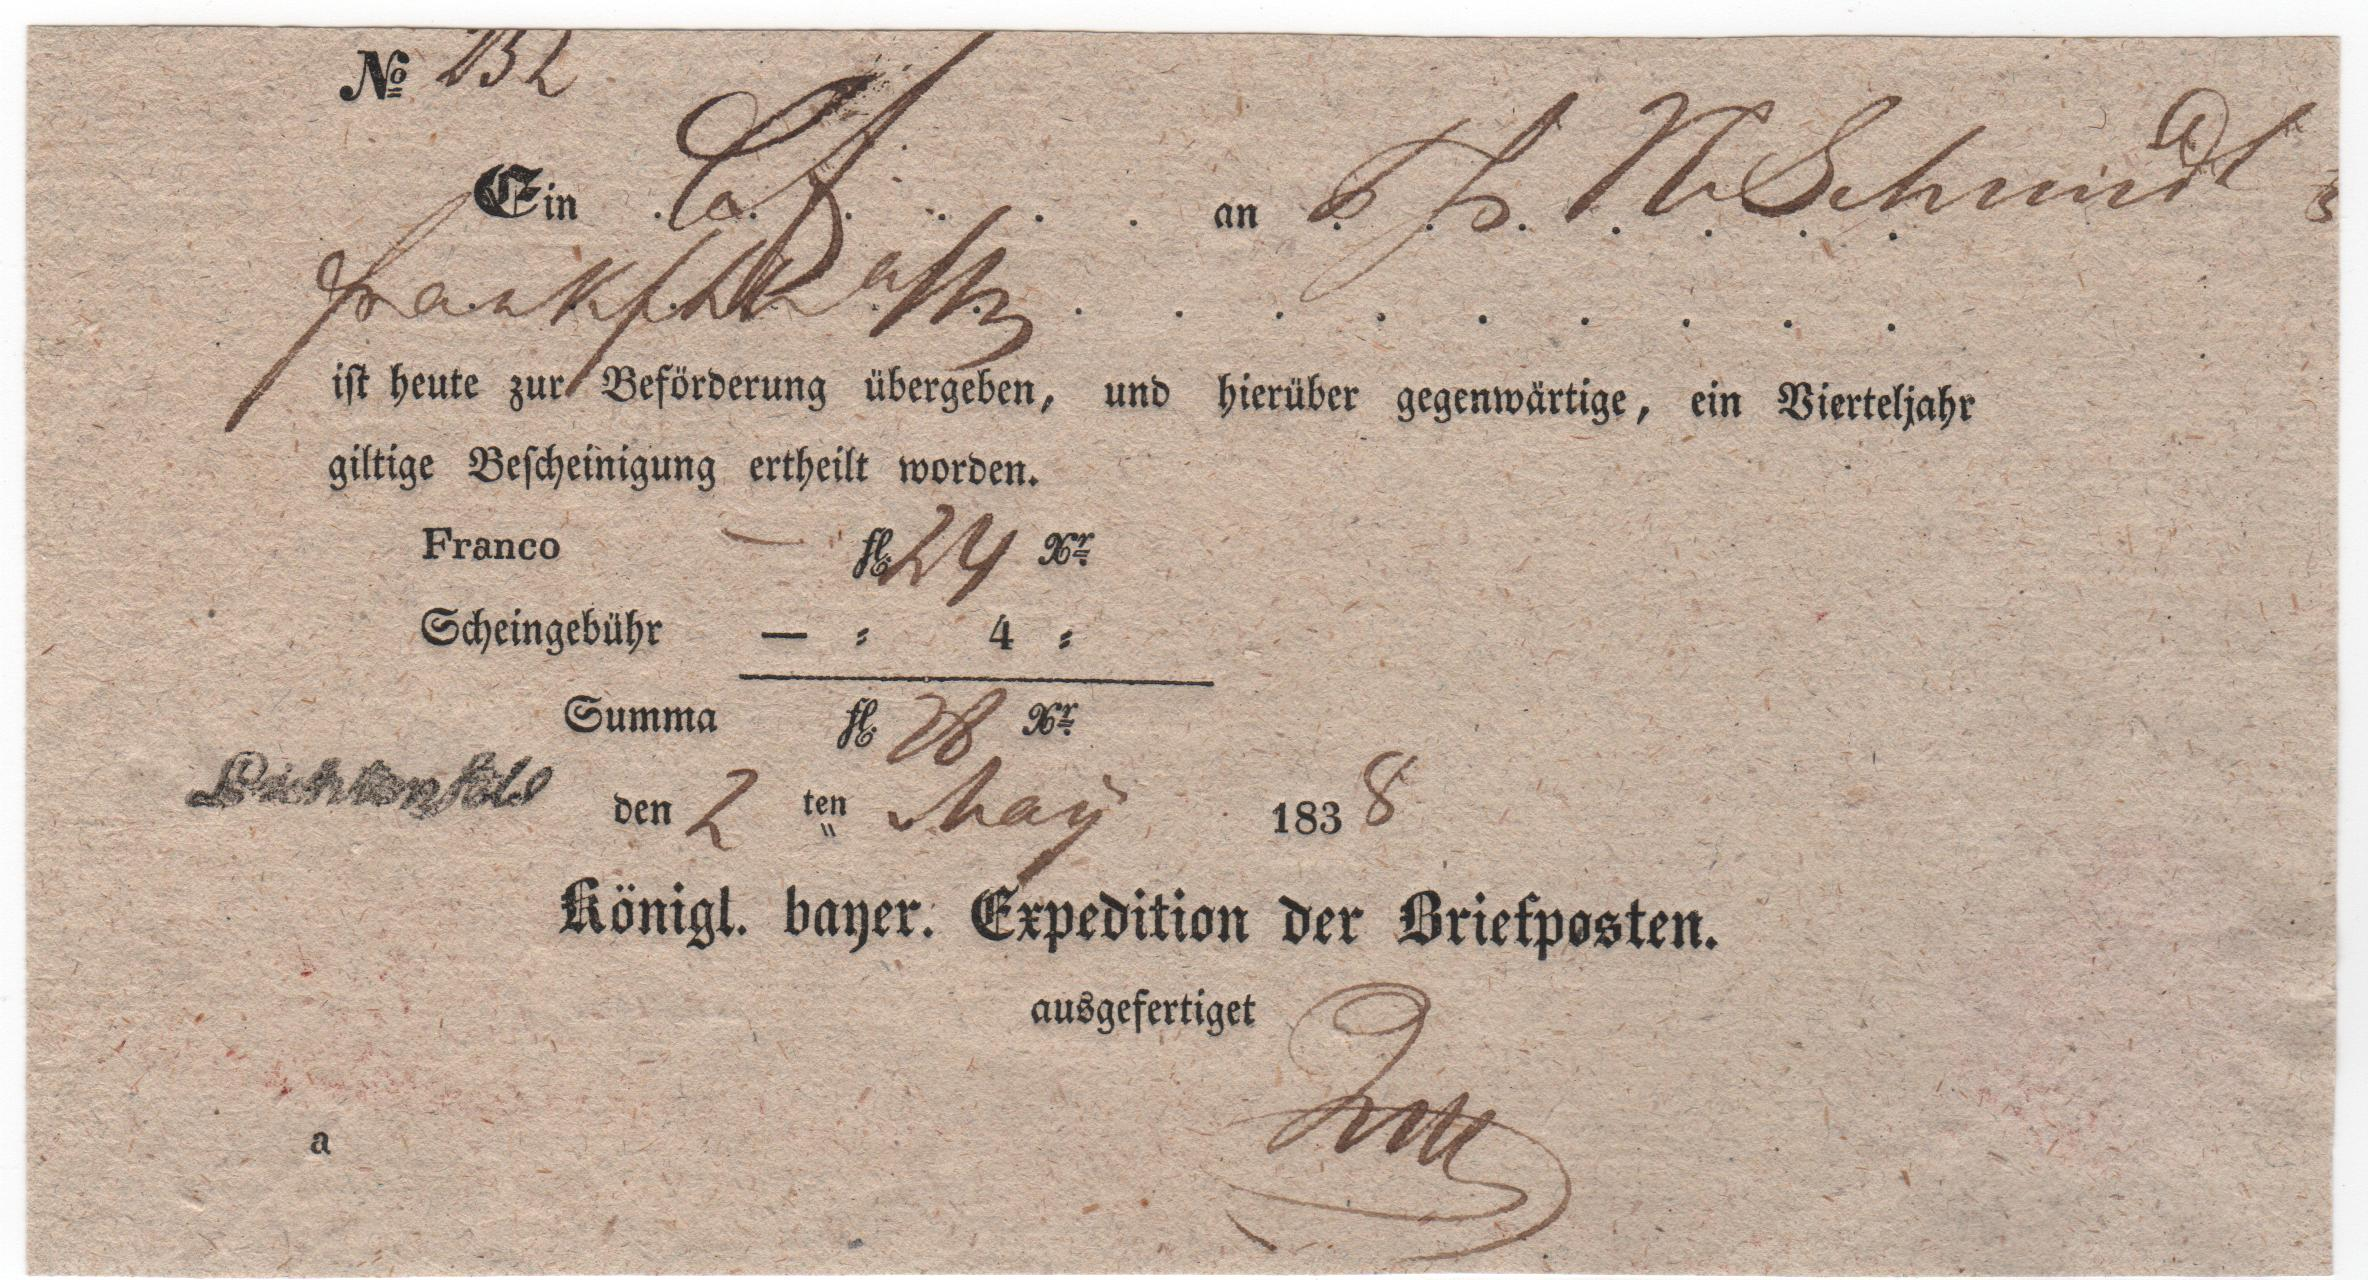 № 232
Ein an W Schmidt
Frankfurt
iſt heute zur Beförderung übergeben, und hierüber gegenwärtige, ein Vierteljahr
giltige Beſcheinigung ertheilt worden.
Franco — fl. 24 Xr.
Scheingebühr — : 4 :
Summa fl. 28 Xr.
Lichtenfels den 2 ten May 1838
Königl. bayer. Expedition der Briefpoſten.
ausgefertiget
a